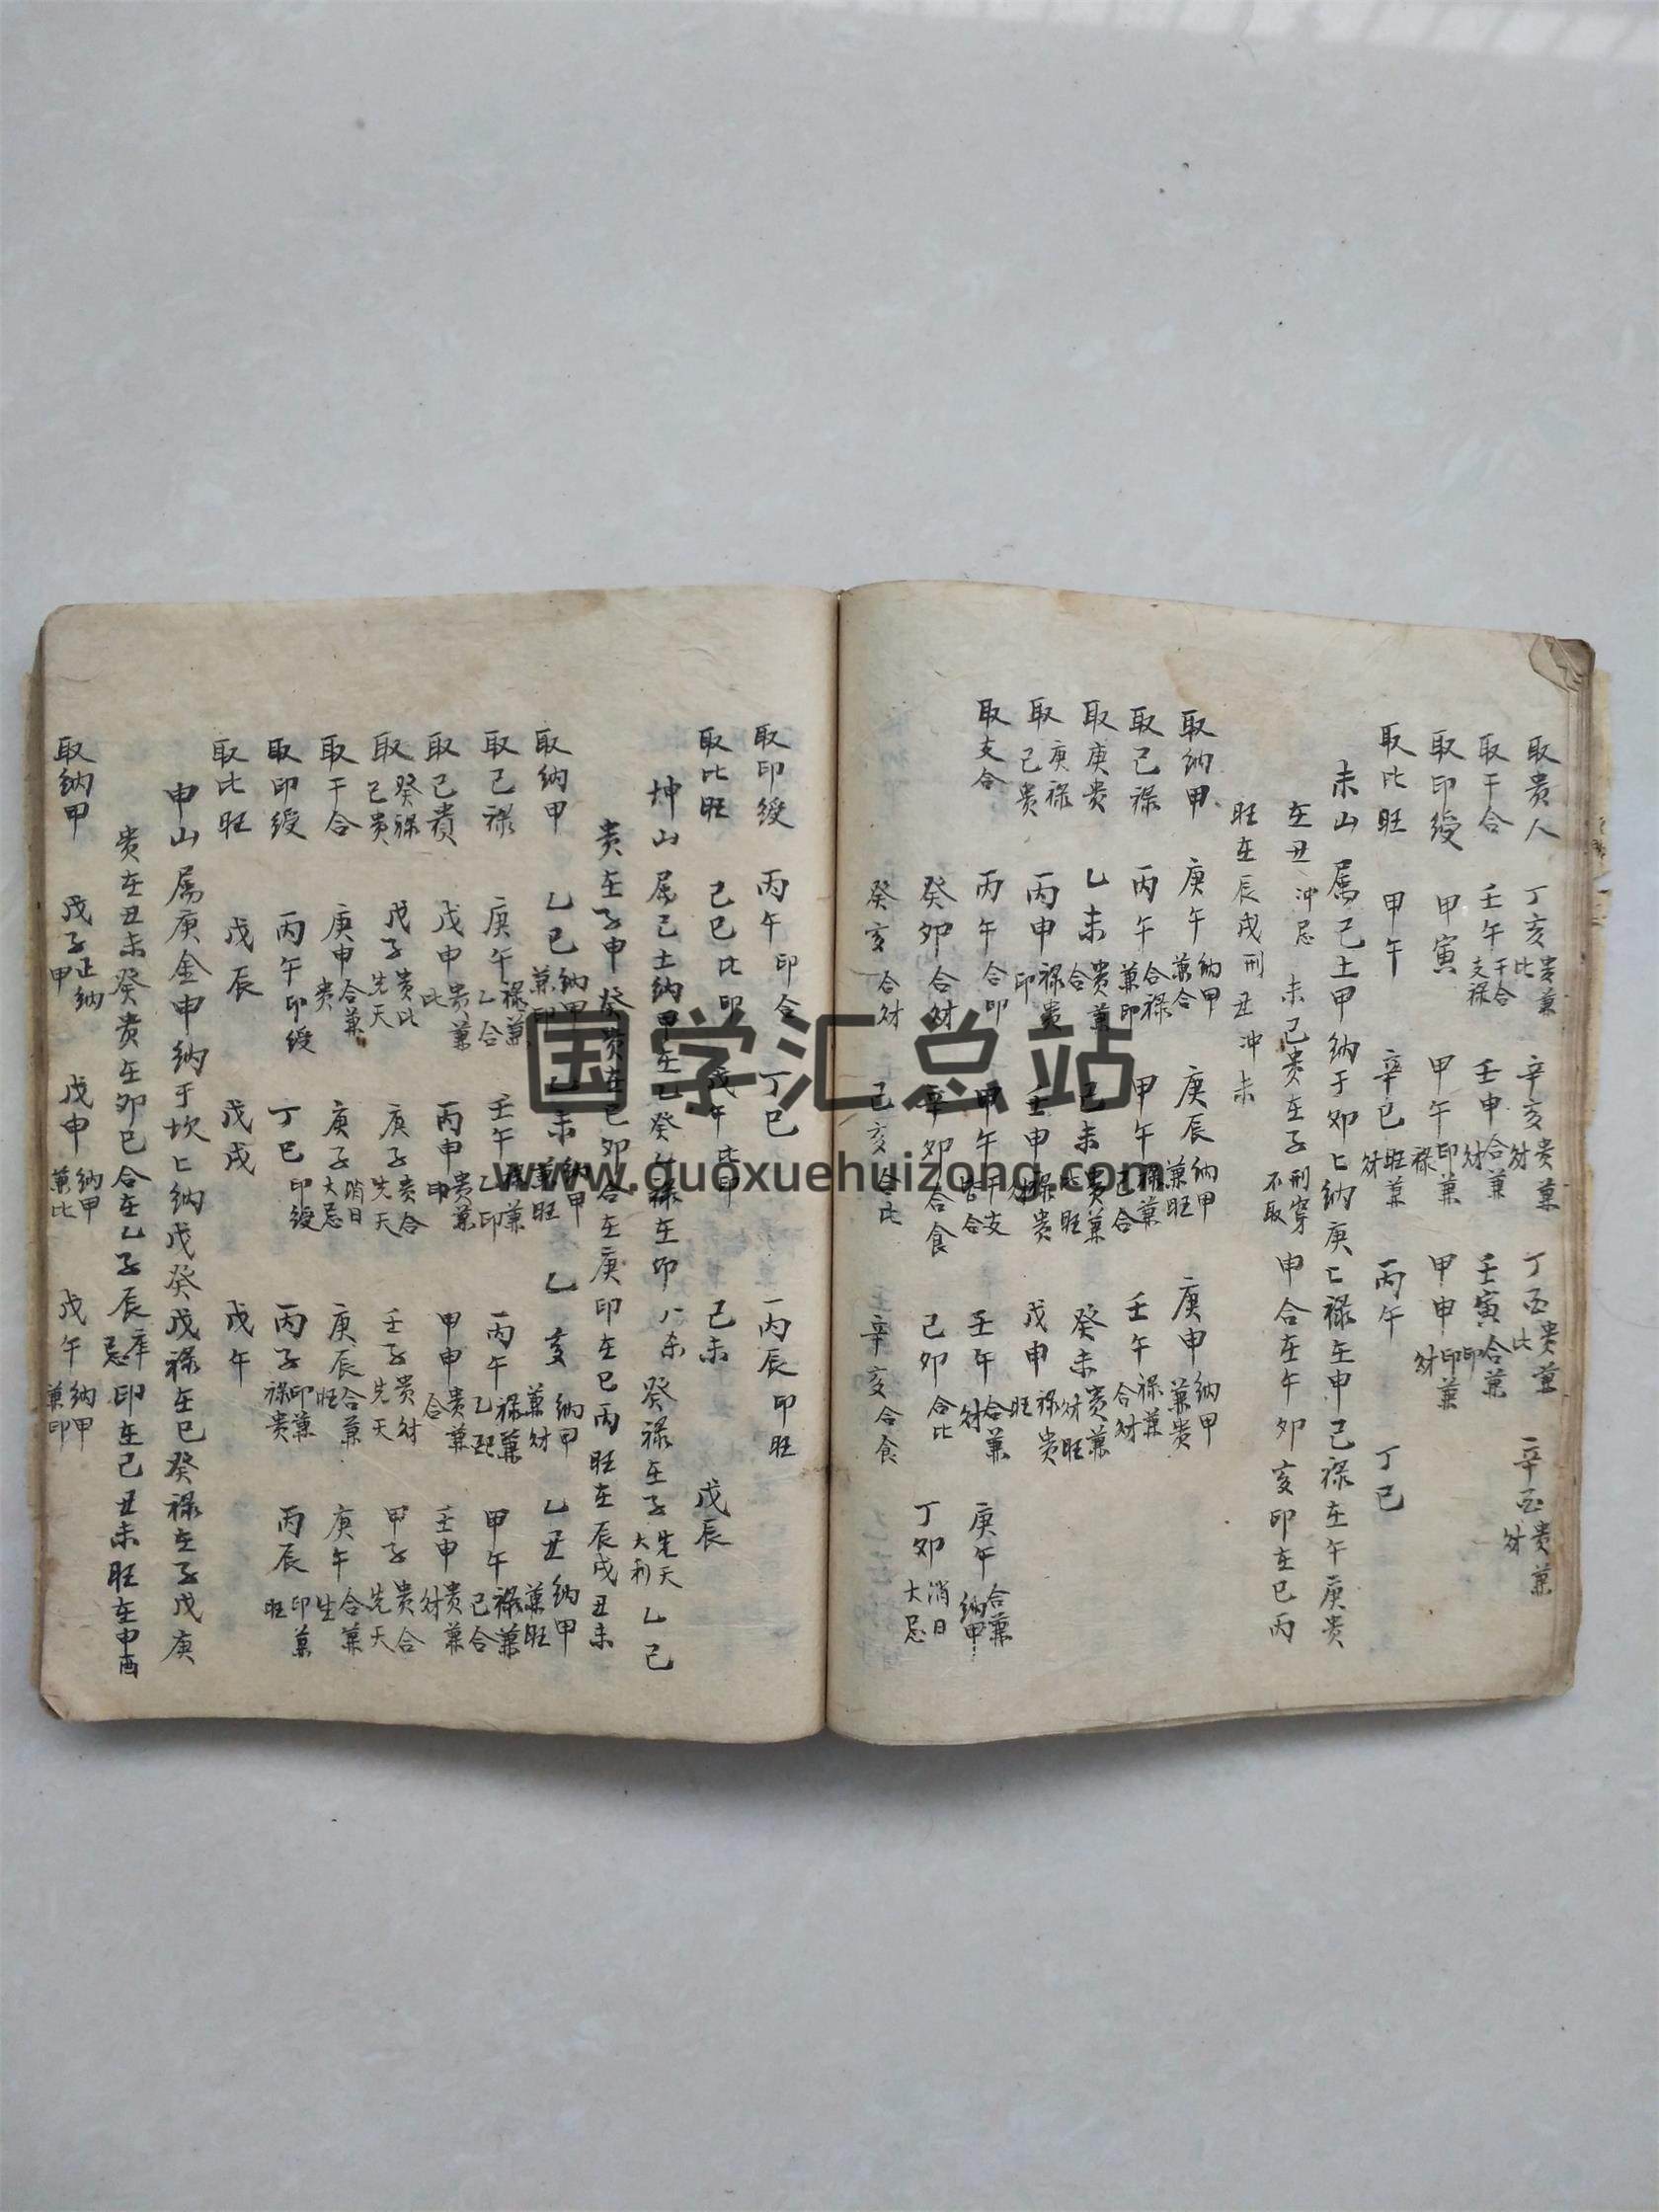 取贵人 丁亥 贵兼比 辛亥 贵兼财 丁酉 贵兼比 辛酉 贵兼财
取干合 壬午 干合支禄 壬申 合兼财 壬寅 合兼印
取印绶 甲寅 甲午 印兼禄 甲申 印兼财
取比旺 甲午 辛巳 旺兼财 丙午 丁巳
未山属己土甲纳于卯乚纳庚乚禄在申己禄在午庚贵
在丑冲忌 未己贵在子刑穿不取 申合在午卯亥印在巳丙
旺在辰戌刑丑冲未
取纳甲 庚午 纳甲兼合 庚辰 纳甲兼旺 庚申 纳甲兼贵
取己禄 丙午 合禄兼印 甲午 禄兼己合 壬午 禄兼合财
取庚贵 乙未 贵兼合 己未 贵兼旺 癸未 贵兼财旺
取庚禄己贵 丙申 禄贵印 壬申 禄贵财 戊申 禄贵旺
取支合 丙午 合印 甲午 干支皆合 壬午 合兼财 庚午 合兼纳甲
癸卯 合财 辛卯 合食 己卯 合比 丁卯 消日大忌
癸亥 合财 己亥 合比 辛亥 合食
取印绶 丙午 印合 丁巳 丙辰 印旺
取比旺 己巳 比印 戊午 比印 己未 戊辰
坤山属己土纳甲在乙癸乙禄在卯八杀癸禄在子先天大利乙己
贵在子申癸贵在巳卯合在庚印在巳丙旺在辰戌丑未
取纳甲 乙巳 纳甲兼印 乙未 纳甲兼旺 乙亥 纳甲兼财 乙丑 纳甲兼旺
取己禄 庚午 禄兼乙合 壬午 禄兼乙印 丙午 禄兼 甲午 禄兼己合
取己贵 戊申 贵兼比 丙申 贵兼印 甲申 贵兼合 壬申 贵兼财
取癸禄己贵 戊子 贵比先天 庚子 贵合先天 壬子 贵财先天 甲子 贵合先天
取干合 庚申 合兼贵 庚子 消日大忌 庚辰 合兼旺 庚午 合兼生
取印绶 丙午 印绶 丁巳 印绶 丙子 印兼禄贵 丙辰 印兼旺
取比旺 戊辰 戊戌 戊午
申山属庚金申纳于坎乚纳戊癸戊禄在巳癸禄在子戊庚
贵在丑未癸贵在卯巳合在乙子辰库忌印在己丑未旺在申酉
取纳甲 戊子 正纳甲 戊申 纳甲兼比 戊午 纳甲兼印
国学汇总站
www.guoxuehuizong.com